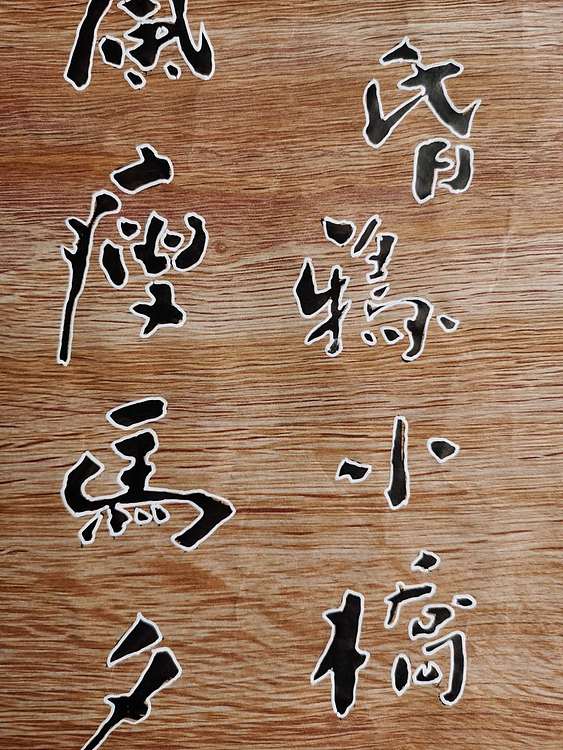 昏鴉小橋
風瘦馬夕